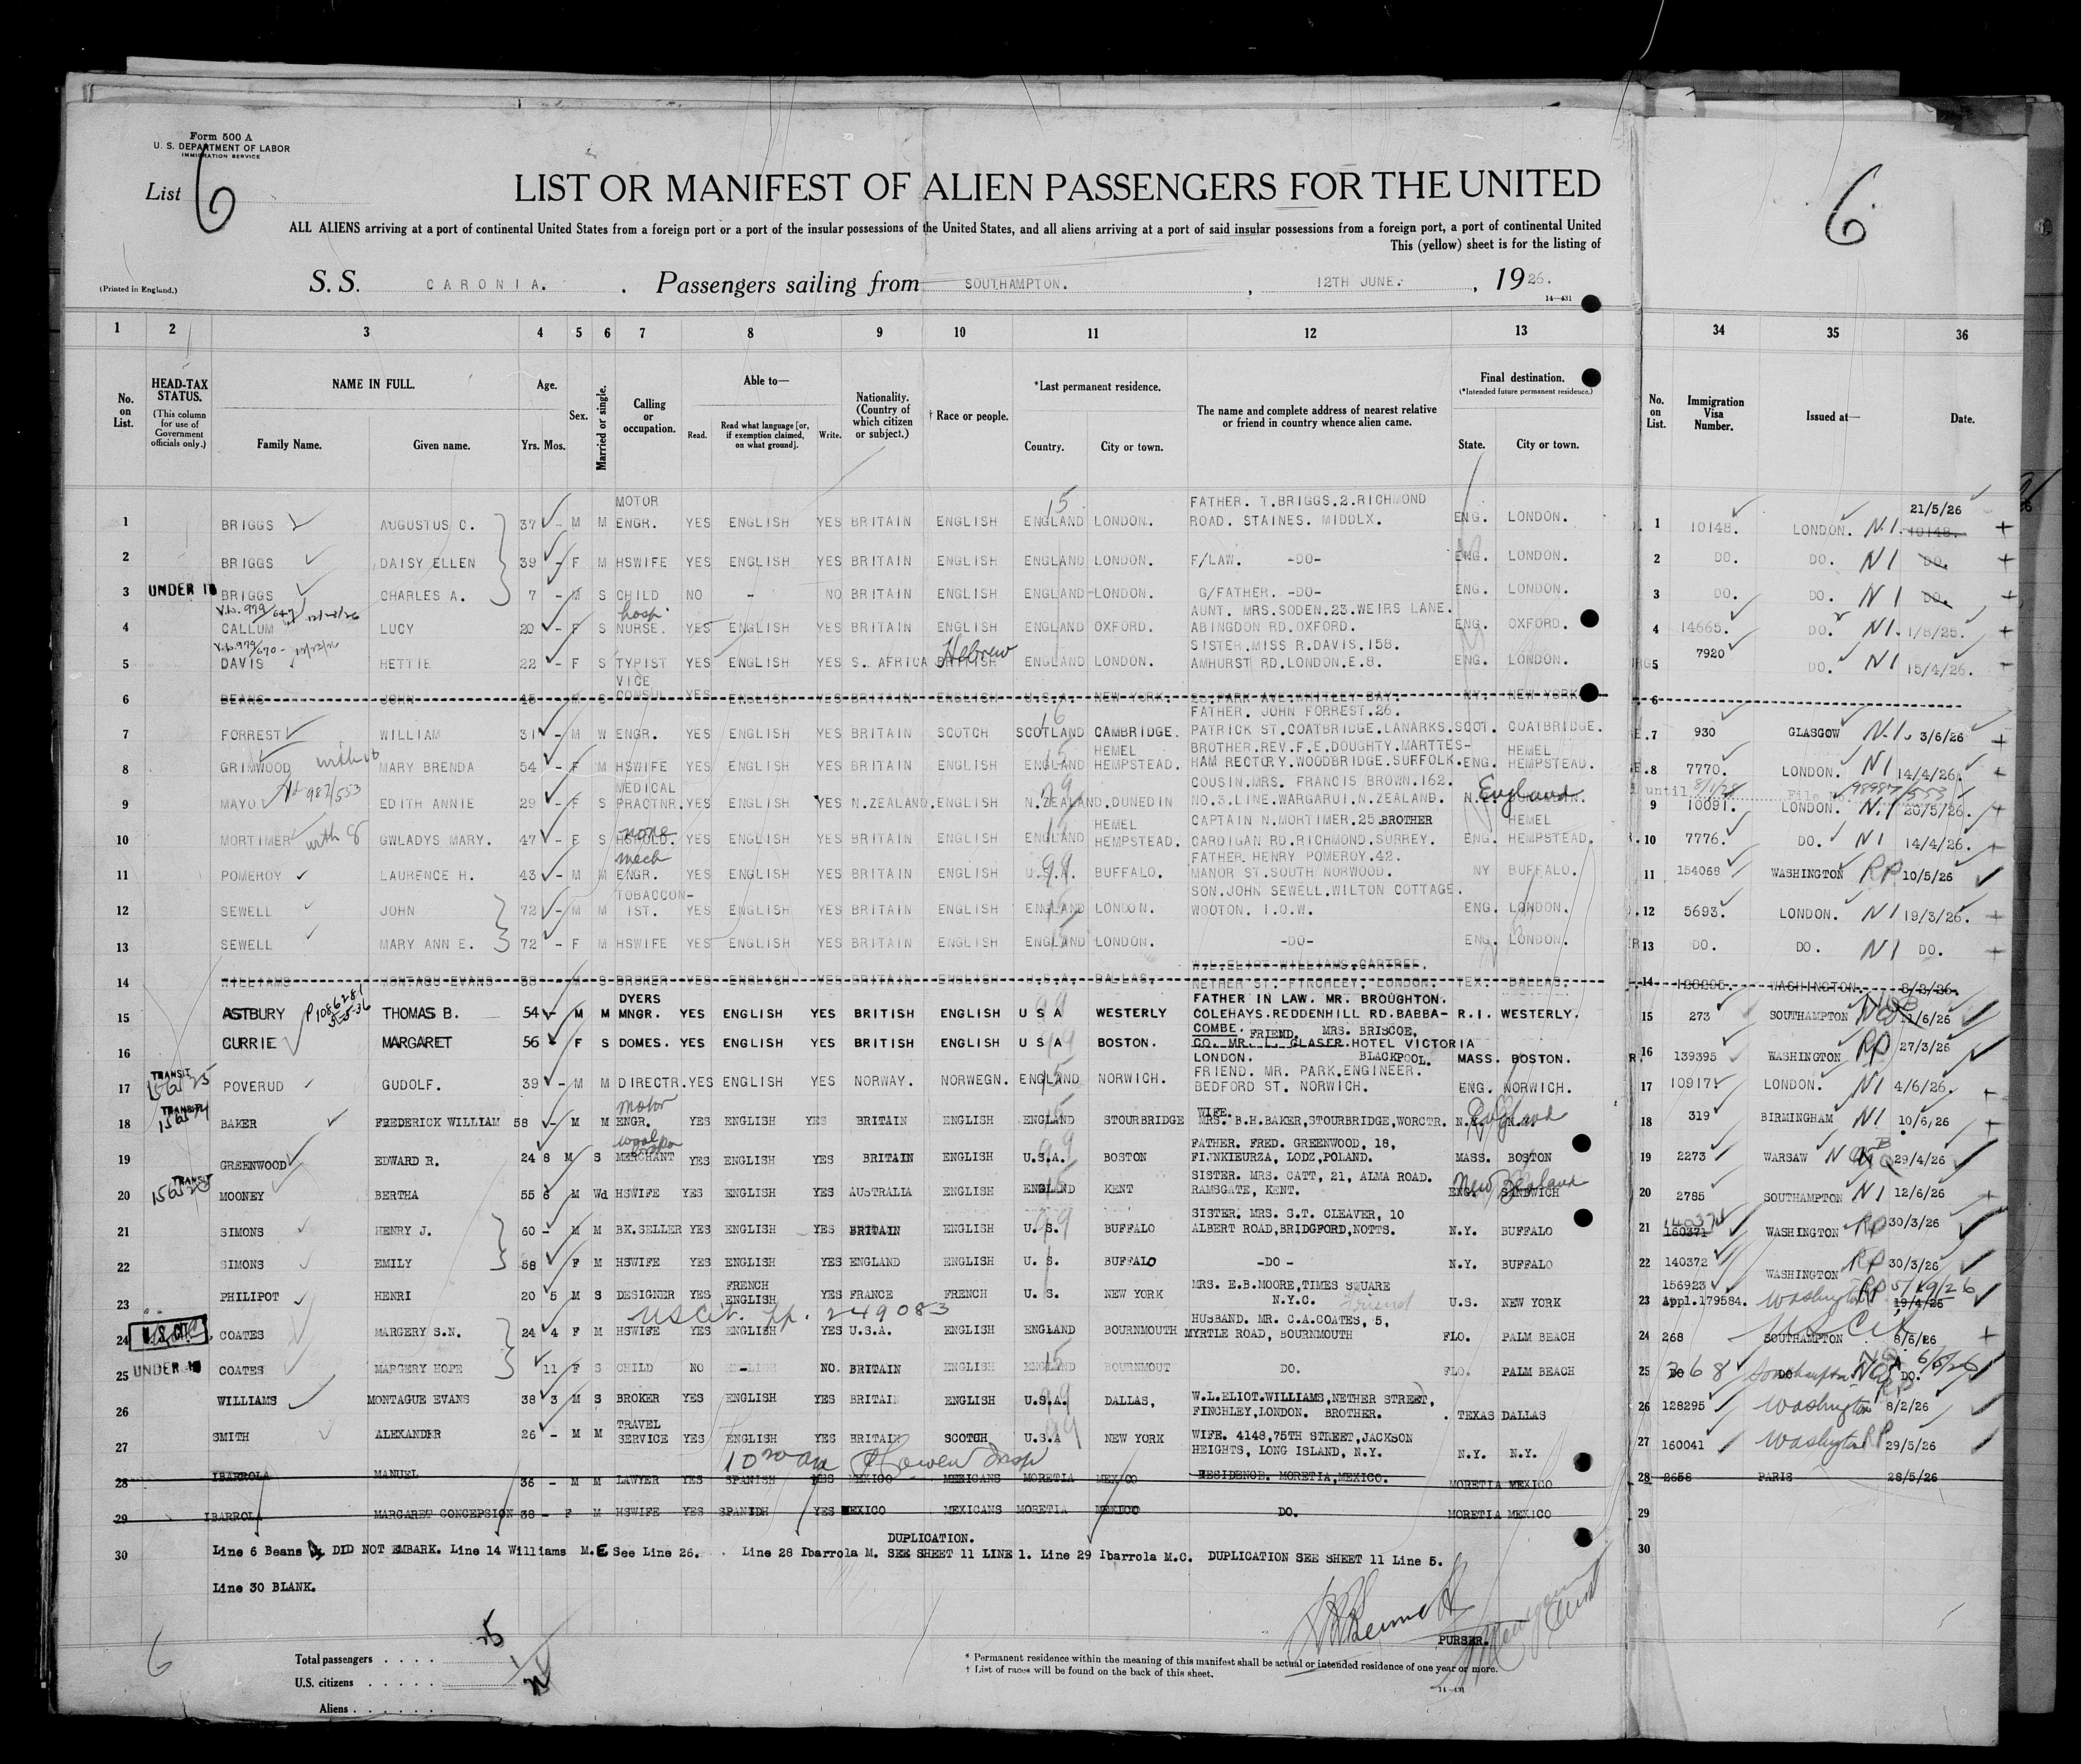 Form 500 A
U. S. DEPARTMENT OF LABOR
IMMIGRATION SERVICE
List 6
6
LIST OR MANIFEST OF ALIEN PASSENGERS FOR THE UNITED
ALL ALIENS arriving at a port of continental United States from a foreign port or a port of the insular possessions of the United States, and all aliens arriving at a port of said insular possessions from a foreign port, a port of continental United
This (yellow) sheet is for the listing of
(Printed in England.)
S. S. CARONIA. . Passengers sailing from SOUTHAMPTON. , 12TH JUNE. , 1926.
14—431
1 2 3 4 5 6 7 8 9 10 11 12 13 34 35 36
No. on List. HEAD-TAX STATUS. (This column for use of Government officials only.) NAME IN FULL. Family Name. Given name. Age. Yrs. Mos. Sex. Married or single. Calling or occupation. Able to— Read. Read what language [or, if exemption claimed, on what ground]. Write. Nationality. (Country of which citizen or subject.) † Race or people. *Last permanent residence. Country. City or town. The name and complete address of nearest relative or friend in country whence alien came. Final destination. (*Intended future permanent residence.) State. City or town. No. on List. Immigration Visa Number. Issued at— Date.
1 BRIGGS AUGUSTUS C. 37 - M M MOTOR ENGR. YES ENGLISH YES BRITAIN ENGLISH ENGLAND 15 LONDON. FATHER. T.BRIGGS.2.RICHMOND ROAD. STAINES. MIDDLX. ENG. LONDON. 1 10148. LONDON. N.I. 21/5/26 10148.
2 BRIGGS DAISY ELLEN 39 - F M HSWIFE YES ENGLISH YES BRITAIN ENGLISH ENGLAND LONDON. F/LAW. -DO- ENG. LONDON. 2 DO. DO. NI DO.
3 UNDER 16 BRIGGS CHARLES A. 7 - M S CHILD NO - NO BRITAIN ENGLISH ENGLAND LONDON. G/FATHER. -DO- ENG. LONDON. 3 DO. DO. NI DO.
4 CALLUM LUCY 20 - F S hosp. NURSE. YES ENGLISH YES BRITAIN ENGLISH ENGLAND OXFORD. AUNT. MRS.SODEN.23.WEIRS LANE. ABINGDON RD.OXFORD. ENG. OXFORD. 4 14665. DO. NI. 1/8/25.
5 DAVIS HETTIE 22 - F S TYPIST YES ENGLISH YES S. AFRICA BRITISH Hebrew ENGLAND LONDON. SISTER.MISS R.DAVIS.158. AMHURST RD.LONDON.E.8. ENG. LONDON. 5 7920 DO. NI 15/4/26.
6 BEANS JOHN 45 M S VICE CONSUL YES ENGLISH YES BRITAIN ENGLISH U.S.A. NEW YORK. PARK AVE.WHITLEY BAY. NY. NEW YORK 6
7 FORREST WILLIAM 31 - M W ENGR. YES ENGLISH YES BRITAIN SCOTCH SCOTLAND 16 CAMBRIDGE. FATHER. JOHN FORREST.26. PATRICK ST.COATBRIDGE.LANARKS. SCOT. COATBRIDGE. 7 930 GLASGOW N.I. 3/6/26
8 GRIMWOOD with 10 MARY BRENDA 54 - F M HSWIFE YES ENGLISH YES BRITAIN ENGLISH ENGLAND 15 HEMEL HEMPSTEAD. BROTHER.REV.F.E.DOUGHTY.MARTTES- HAM RECTORY.WOODBRIDGE.SUFFOLK. ENG. HEMEL HEMPSTEAD. 8 7770. LONDON. NI 14/4/26.
9 MAYO EDITH ANNIE 29 - F S MEDICAL PRACTNR. YES ENGLISH YES N.ZEALAND. ENGLISH N.ZEALAND. DUNEDIN COUSIN.MRS. FRANCIS BROWN.162. NO.3.LINE.WARGARUI.N.ZEALAND. England 9 10091. LONDON. N.I 20/5/26.
10 MORTIMER with 8 GWLADYS MARY. 47 - F S none HSHOLD. YES ENGLISH YES BRITAIN ENGLISH ENGLAND 15 HEMEL HEMPSTEAD. CAPTAIN N.MORTIMER.25.BROTHER CARDIGAN RD.RICHMOND.SURREY. ENG. HEMEL HEMPSTEAD. 10 7776. DO. NI 14/4/26.
11 POMEROY LAURENCE H. 43 - M M mech ENGR. YES ENGLISH YES BRITAIN ENGLISH U.S.A. 99 BUFFALO. FATHER.HENRY POMEROY.42. MANOR ST.SOUTH NORWOOD. NY BUFFALO. 11 154068 WASHINGTON RP 10/5/26
12 SEWELL JOHN 72 - M M TOBACCON- IST. YES ENGLISH YES BRITAIN ENGLISH ENGLAND 15 LONDON. SON.JOHN SEWELL.WILTON COTTAGE. WOOTON. I.O.W. ENG. LONDON. 12 5693. LONDON. NI 19/3/26.
13 SEWELL MARY ANN E. 72 - F M HSWIFE YES ENGLISH YES BRITAIN ENGLISH ENGLAND 15 LONDON. -DO- ENG. LONDON. 13 DO. DO. NI DO.
14 WILLIAMS MONTAGU EVANS 38 - M S BROKER YES ENGLISH YES BRITAIN ENGLISH U.S.A. DALLAS. W.L.ELIOT WILLIAMS.GARTREF. NETHER ST. FINCHLEY. LONDON. TEX. DALLAS. 14 128295. WASHINGTON. 8/2/26.
15 ASTBURY THOMAS B. 54 - M M DYERS MNGR. YES ENGLISH YES BRITISH ENGLISH U S A 99 WESTERLY FATHER IN LAW. MR. BROUGHTON. COLEHAYS.REDDENHILL RD.BABBA- COMBE. R.I. WESTERLY. 15 273 SOUTHAMPTON 11/6/26
16 CURRIE MARGARET 56 - F S DOMES. YES ENGLISH YES BRITISH ENGLISH U S A 99 BOSTON. FRIEND. MRS. BRISCOE, CO. MR. L. GLASER. HOTEL VICTORIA LONDON. BLACKPOOL. MASS. BOSTON. 16 139395 WASHINGTON RP 27/3/26
17 TRANSIT 156525 POVERUD GUDOLF. 39 - M M DIRECTR. YES ENGLISH YES NORWAY. NORWEGN. ENGLAND 15 NORWICH. FRIEND. MR. PARK.ENGINEER. BEDFORD ST. NORWICH. ENG. NORWICH. 17 10917 LONDON. NI 4/6/26.
18 TRANSIT 156524 BAKER FREDERICK WILLIAM 58 - M M motor ENGR. YES ENGLISH YES BRITAIN ENGLISH ENGLAND 15 STOURBRIDGE WIFE. MRS. B.H.BAKER,STOURBRIDGE,WORCTR. England 18 319 BIRMINGHAM NI 10/6/26
19 GREENWOOD EDWARD R. 24 8 M S MERCHANT YES ENGLISH YES BRITAIN ENGLISH U.S.A. 99 BOSTON FATHER. FRED. GREENWOOD, 18, FIJNKIEURZA, LODZ,POLAND. MASS. BOSTON 19 2273 WARSAW 29/4/26
20 TRANSIT 156523 MOONEY BERTHA 55 6 M Wd HSWIFE YES ENGLISH YES AUSTRALIA ENGLISH ENGLAND 15 KENT SISTER. MRS. CATT, 21, ALMA ROAD. RAMSGATE, KENT. New Zealand ENG. SANDWICH 20 2785 SOUTHAMPTON NI 12/6/26
21 SIMONS HENRY J. 60 - M M BK.SELLER YES ENGLISH YES BRITAIN ENGLISH U. S. 99 BUFFALO SISTER. MRS. S.T. CLEAVER, 10 ALBERT ROAD,BRIDGFORD,NOTTS. N.Y. BUFFALO 21 140371 160371 WASHINGTON RP 30/3/26
22 SIMONS EMILY 58 F M HSWIFE YES ENGLISH YES ENGLAND ENGLISH U. S. BUFFALO -DO - N.Y. BUFFALO 22 140372 WASHINGTON RP 30/3/26
23 PHILIPOT HENRI 20 5 M S DESIGNER YES FRENCH ENGLISH YES FRANCE FRENCH U. S. NEW YORK MRS. E.B.MOORE,TIMES SQUARE N.Y.C. friend U.S. NEW YORK 23 156923 Appl.179584. Washington RP 5/19/26 19/4/26
US Cit. pp. 249083
24 U.S. CIT. COATES MARGERY S.N. 24 4 F M HSWIFE YES ENGLISH YES U.S.A. ENGLISH ENGLAND BOURNMOUTH HUSBAND. MR. C.A.COATES, 5, MYRTLE ROAD, BOURNMOUTH FLO. PALM BEACH 24 268 SOUTHAMPTON US Cit 8/6/26
25 UNDER 16 COATES MARGERY HOPE 11 F S CHILD NO ENGLISH NO. BRITAIN ENGLISH ENGLAND 15 BOURNMOUT DO. FLO. PALM BEACH 25 268 DO Southampton DO.
26 WILLIAMS MONTAGUE EVANS 38 3 M S BROKER YES ENGLISH YES BRITAIN ENGLISH U.S.A. 99 DALLAS, W.L.ELIOT.WILLIAMS,NETHER STREET, FINCHLEY,LONDON. BROTHER. TEXAS DALLAS 26 128295 Washington RP 8/2/26
27 SMITH ALEXANDER 26 - M M TRAVEL SERVICE YES ENGLISH YES BRITAIN SCOTCH U.S.A 99 NEW YORK WIFE. 4148,75TH STREET,JACKSON HEIGHTS, LONG ISLAND, N.Y. N.Y. N.Y. 27 160041 Washington RP 29/5/26
28 IBARROLA MANUEL 36 - M M LAWYER YES SPANISH YES MEXICO MEXICANS MORETIA MEXICO RESIDENCE. MORETIA,MEXICO. MORETIA MEXICO 28 2658 PARIS 28/5/26
29 IBARROLA MARGARET CONCEPSION 38 - F M HSWIFE YES SPANIDH YES MEXICO MEXICANS MORETIA MEXICO DO. MORETIA MEXICO 29
DUPLICATION.
30 Line 6 Beans J. DID NOT EMBARK. Line 14 Williams M.E. See Line 26. . Line 28 Ibarrola M. SEE SHEET 11 LINE 1. Line 29 Ibarrola M.C. DUPLICATION SEE SHEET 11 Line 5. 30
Line 30 BLANK.
PURSER.
6
Total passengers . . . .
U.S. citizens . . . . .
Aliens . . . . . .
* Permanent residence within the meaning of this manifest shall be actual or intended residence of one year or more.
† List of races will be found on the back of this sheet.
14—431